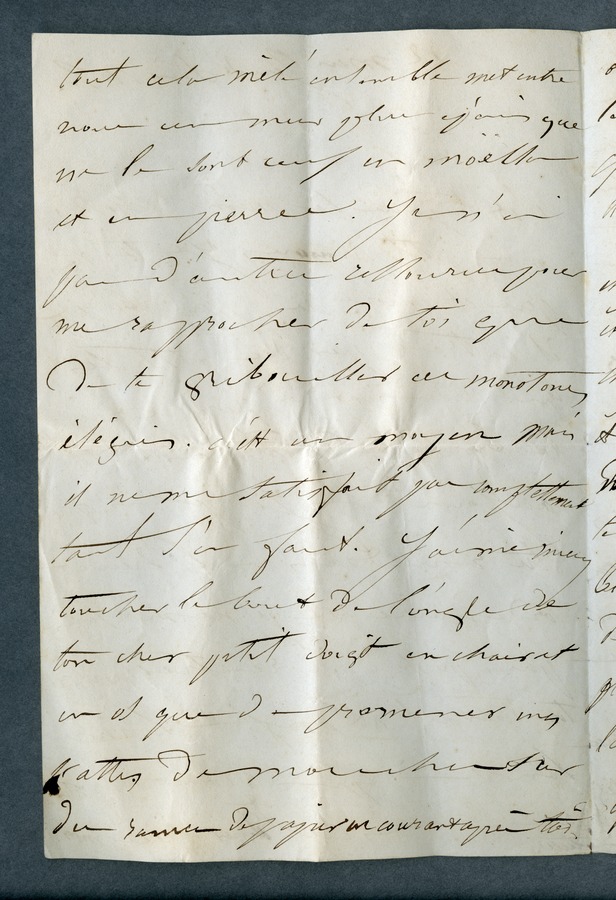 tout cela mêlé ensemble met entre
nous un mur plus épais que
ne le sont ceux en moëllon
et en pierres. Je n'ai
pas d'autres ressources pour
me rapprocher de toi que
de te gribouiller ces monotones
élégies. c'est un moyen mais
il ne me satisfait pas complettement
tant s'en faut. J'aime mieux
toucher le bout de l'ongle de
ton cher petit doigt en chair et
en os que de promener mes
pattes de mouches sur
des rames de papier en courant après toi